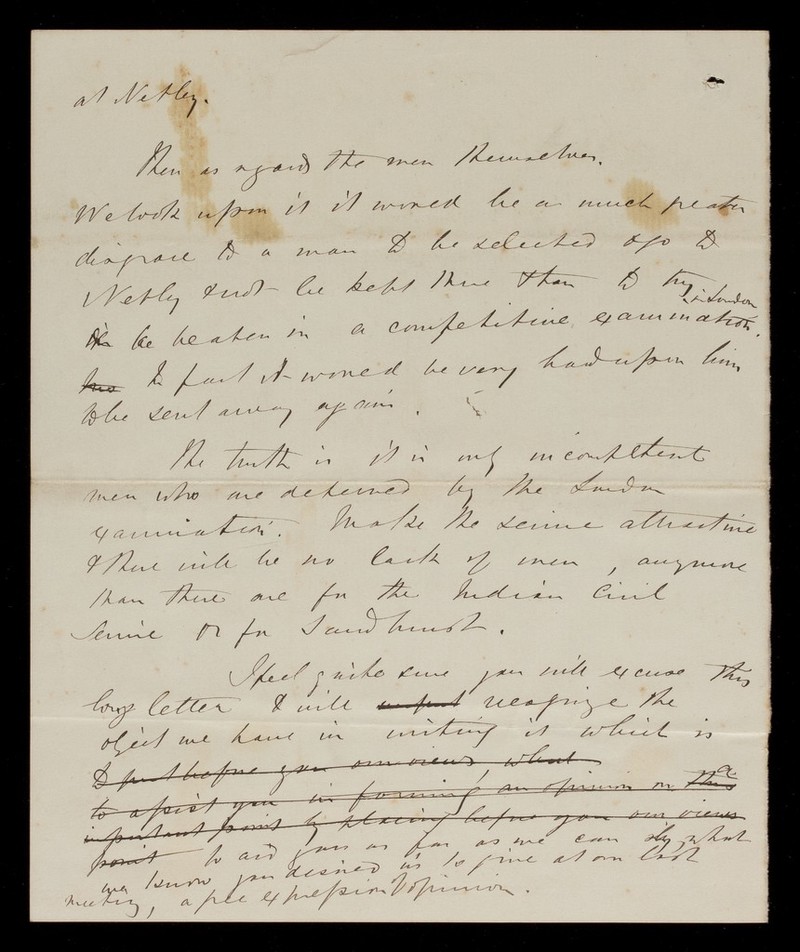 at Netley.
Then as regards the men themselves.
We look upon it it would be a much greater
disgrace to a man to be selected & go to
Netley & not be kept there than to try
in London
& be beaten in a competitive examination.
In fact it would be very hard upon him
to be sent away again.
The truth is it is only incompetent
men who are deterred by the London
examination. Make the service attractive
& there will be no lack of men, anymore
than there are for the Indian Civil
Service or for Sandhurst.
I feel quite sure you will excuse this
long letter & will recognize the
object we have in writing it which is
to put before you our views what
to assist you in forming an opinion on this a
important point by placing before you our views
point to aid you as far as we can by what
we know you desired us to give at our last
meeting, a free expression of opinion.